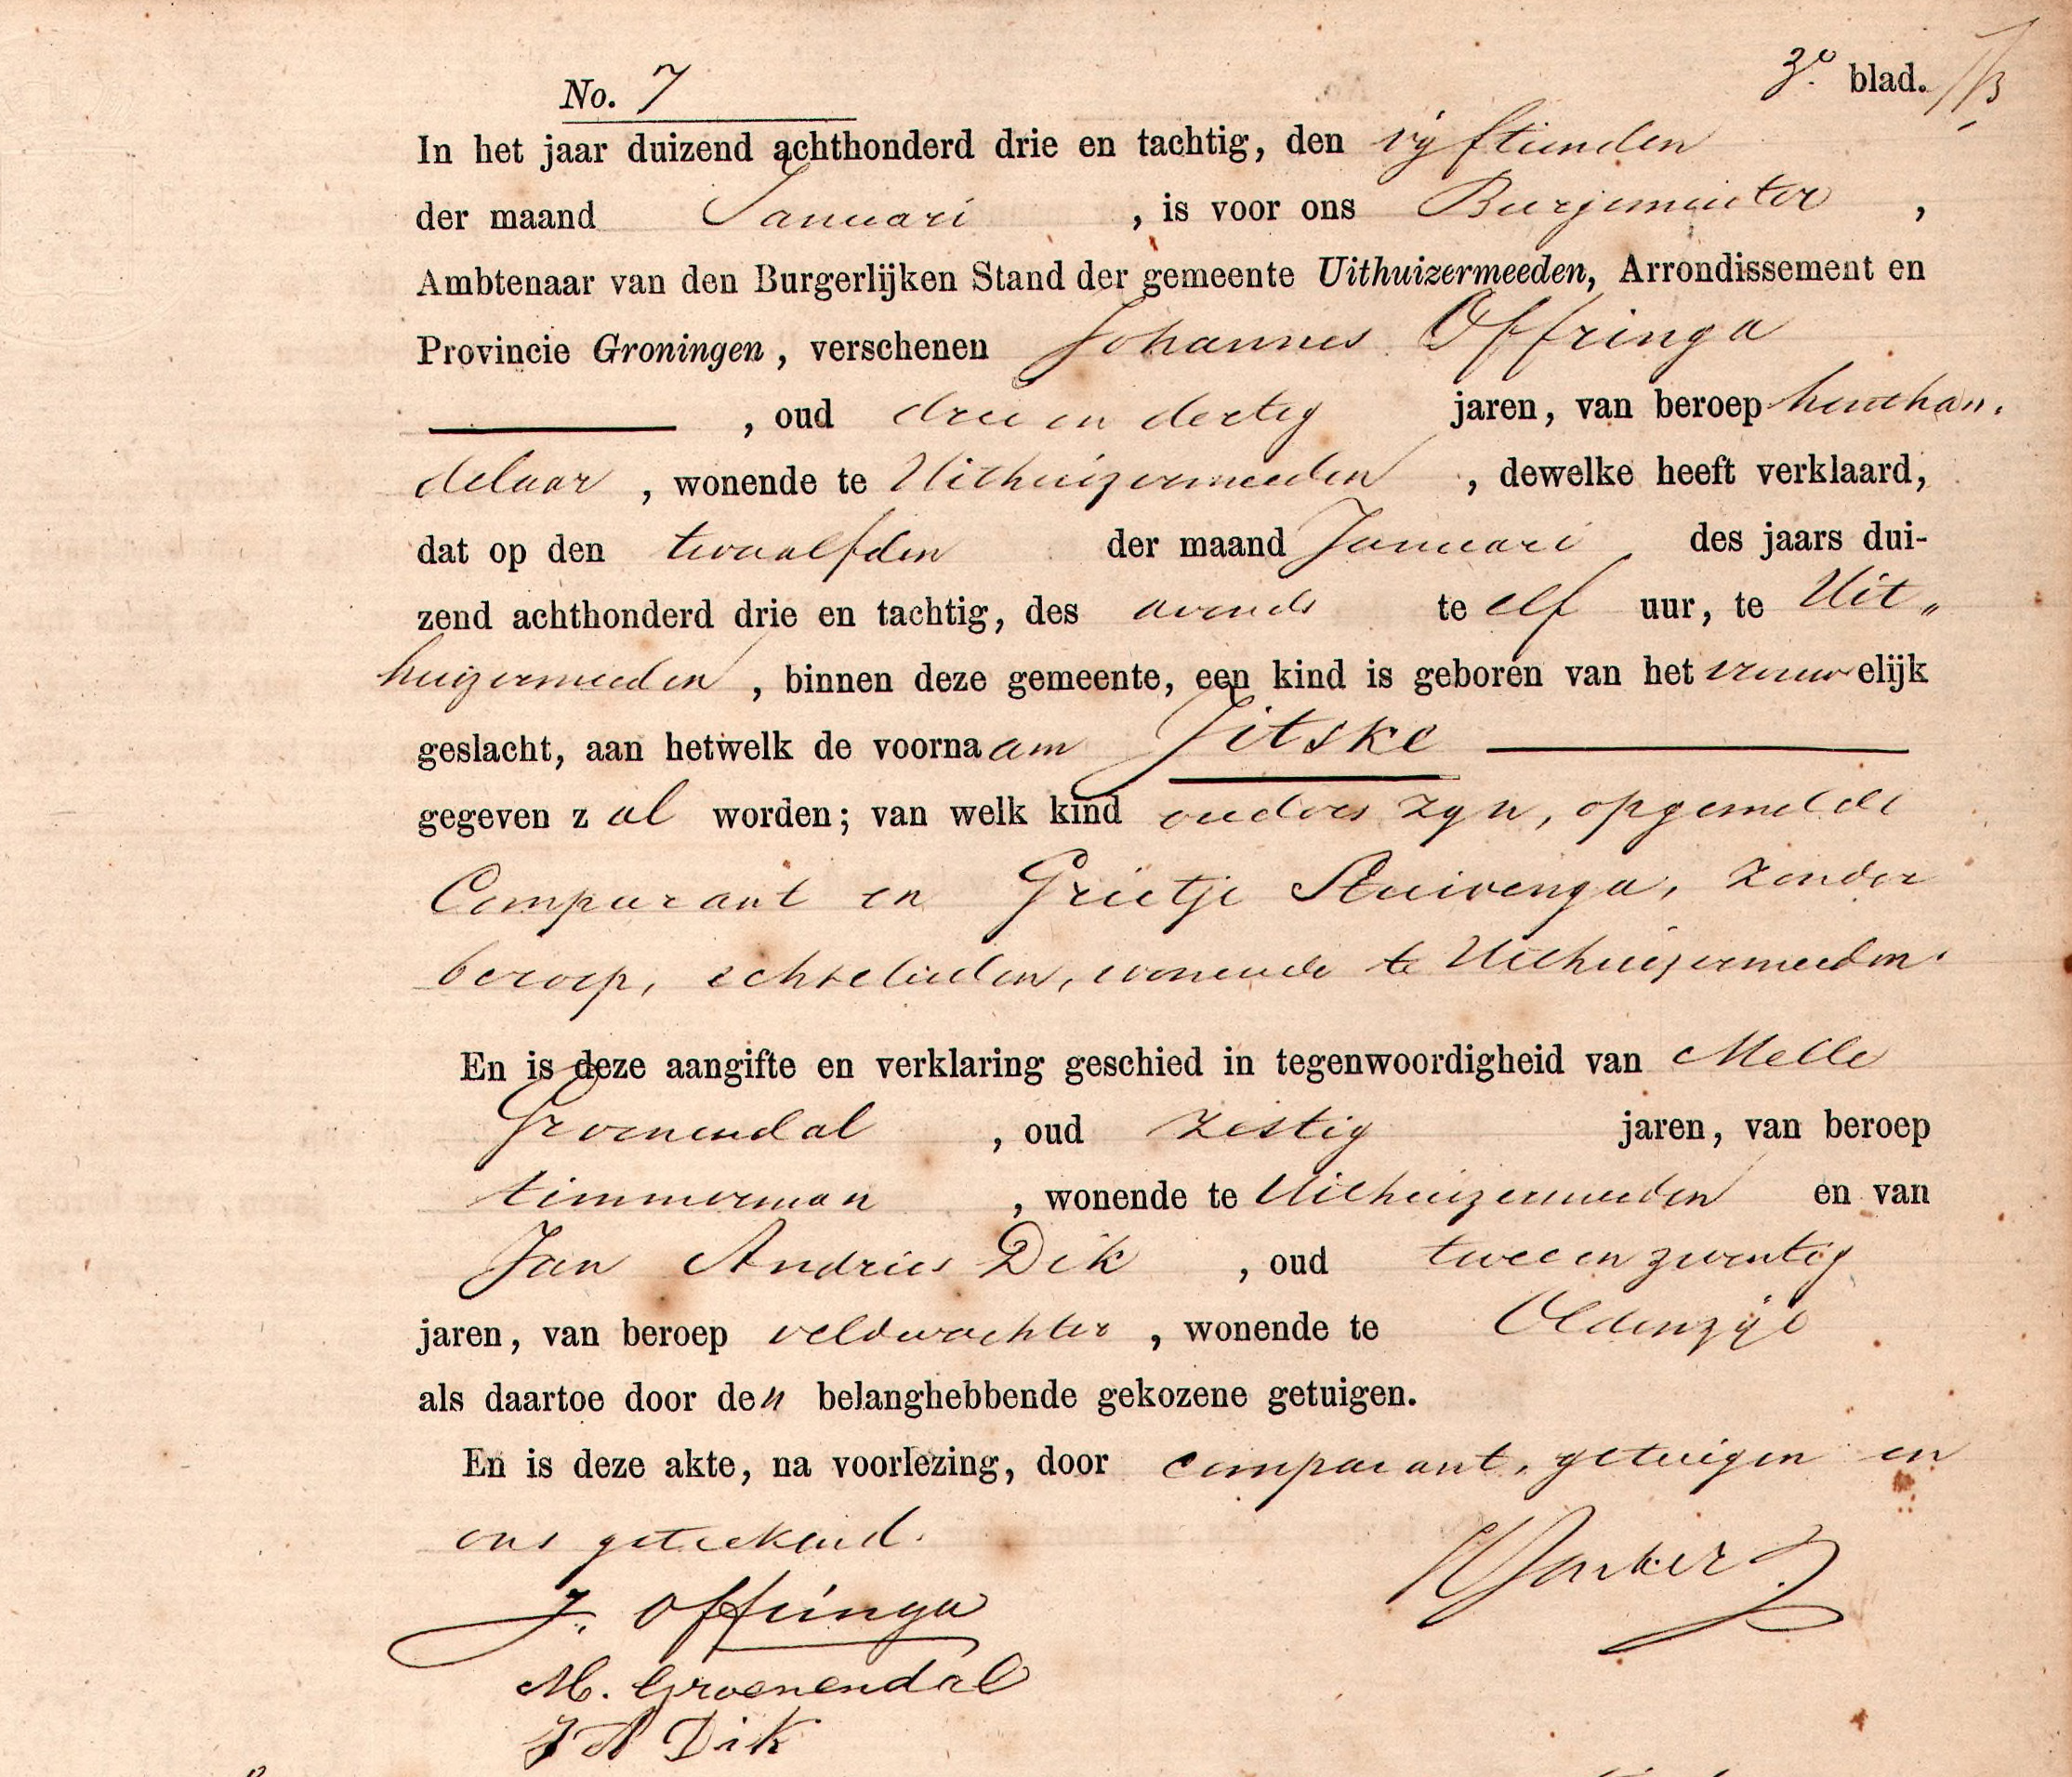 No. 7
3e blad.
In het jaar duizend achthonderd drie en tachtig, den vijftienden
der maand Januari , is voor ons Burgemeester ,
Ambtenaar van den Burgerlijken Stand der gemeente Uithuizermeeden, Arrondissement en
Provincie Groningen, verschenen Johannes Offringa
, oud drie en dertig jaren, van beroep houthan-
delaar , wonende te Uithuizermeeden , dewelke heeft verklaard,
dat op den twaalfden der maand Januari des jaars dui-
zend achthonderd drie en tachtig, des avonds te elf uur, te Uit-
huizermeeden , binnen deze gemeente, een kind is geboren van het vrouwelijk
geslacht, aan hetwelk de voornaam Jitske
gegeven zal worden; van welk kind ouders zyn, opgemelde
Comparant en Grietje Stuivenga, zonder
beroep, echtelieden, wonende te Uithuizermeeden.
En is deze aangifte en verklaring geschied in tegenwoordigheid van Melle
Groenendal , oud zestig jaren, van beroep
timmerman , wonende te Uithuizermeeden en van
Jan Andries Dik , oud twee en zwentig
jaren, van beroep veldwachter , wonende te Oldenzijl
als daartoe door den belanghebbende gekozene getuigen.
En is deze akte, na voorlezing, door comparant, getuigen en
ons geteekend.
J. Offringa
M. Groenendal
J A Dik